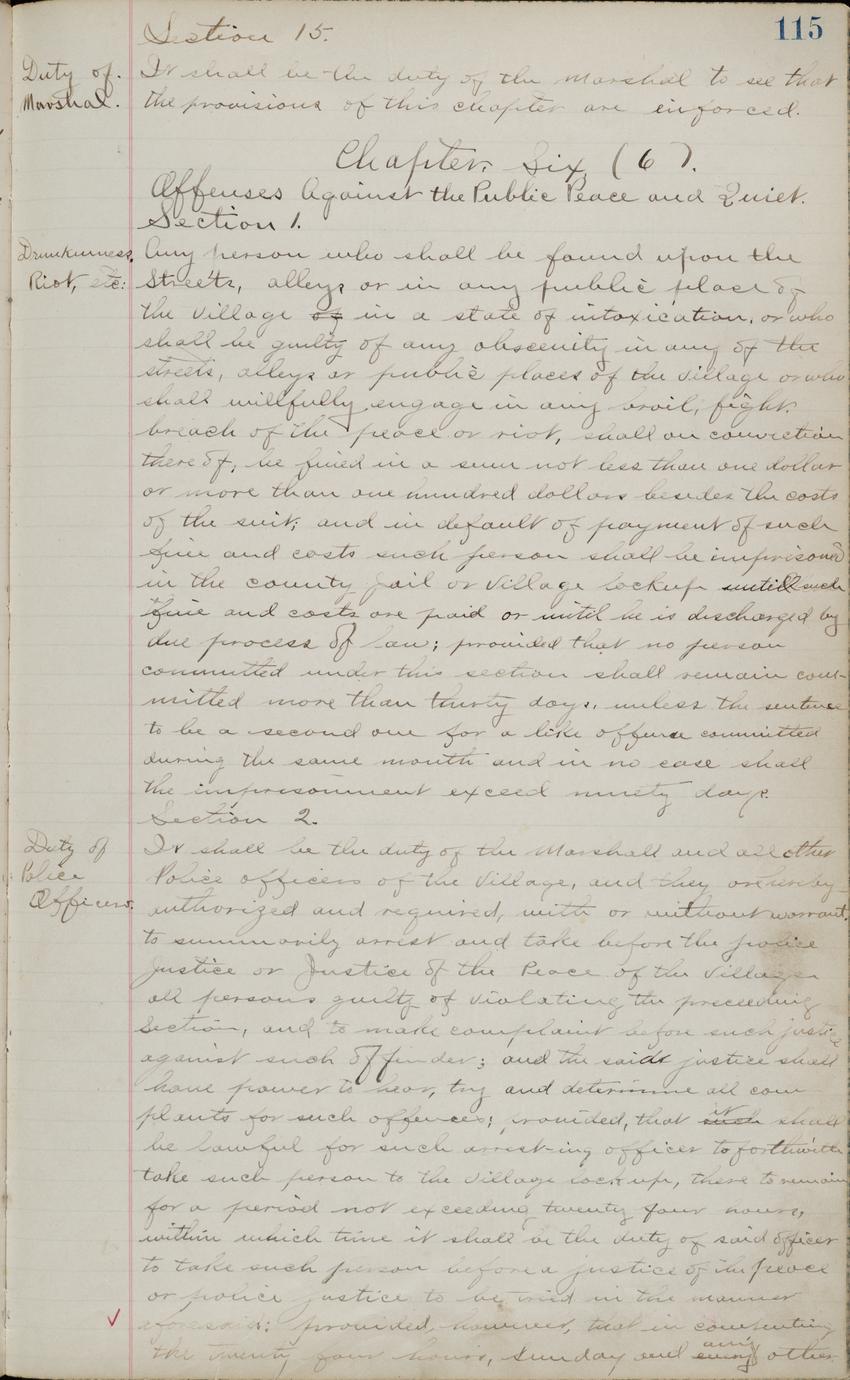 115
Section 15.
Duty of
Marshal.
It shall be the duty of the Marshal to see that
the provisions of this chapter are enforced.
Chapter Six (6).
Offenses Against the Public Peace and Quiet.
Section 1.
Drunkenness,
Riot, etc:
Any person who shall be found upon the
Streets, alleys or in any public place of
the Village of in a state of intoxication, or who
shall be guilty of any obscenity in any of the
streets, alleys or public places of the Village or who
shall willfully engage in any broil, fight,
breach of the peace or riot, shall on conviction
thereof, be fined in a sum not less than one dollar
or more than one hundred dollars besides the costs
of the suit; and in default of payment of such
fine and costs such person shall be imprisoned
in the county jail or Village lockup until such
fine and costs are paid or until he is discharged by
due process of law; provided that no person
committed under this section shall remain com-
mitted more than thirty days, unless the sentence
to be a second one for a like offense committed
during the same month and in no case shall
the imprisonment exceed ninety days.
Section 2.
Duty of
Police
Officers.
It shall be the duty of the Marshall and all other
Police officers of the Village, and they are hereby
authorized and required, with or without warrant,
to summarily arrest and take before the police
Justice or Justice of the Peace of the Village
all persons guilty of violating the preceeding
Section, and to make complaint before such justice
against such offender; and the said justice shall
have power to hear, try and determine all com
plants for such offences; provided, that such it shall
be lawful for such arrest-ing officer to forthwith
take such person to the Village lock up, there to remain
for a period not exceeding twenty four hours,
within which time it shall be the duty of said officer
to take such person before a justice of the peace
or police justice to be tried in the manner
aforesaid: provided, however, that in computing
the twenty four hours, Sunday and any other